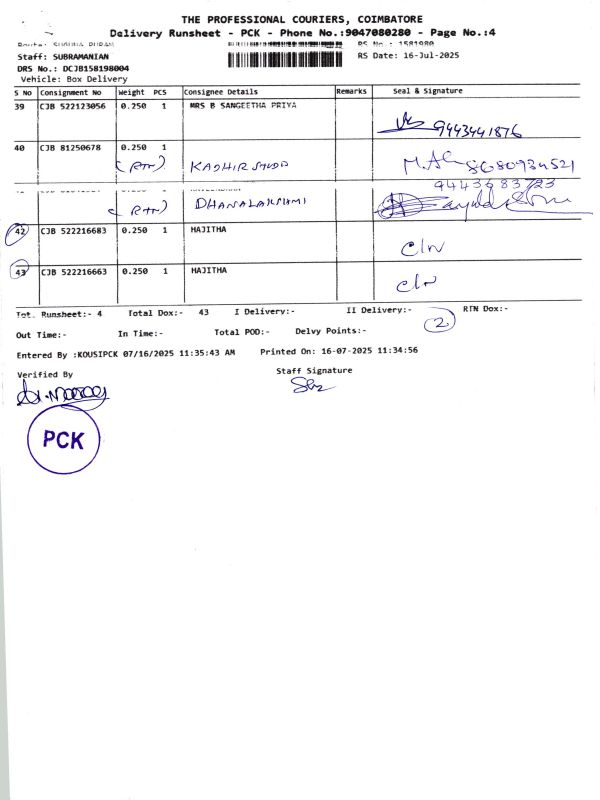 THE PROFESSIONAL COURIERS, COIMBATORE
Delivery Runsheet - PCK - Phone No.:9047080280 - Page No.:4
RS No.: 1581980
Staff: SUBRAMANIAN RS Date: 16-Jul-2025
DRS No.: DCJB158198004
Vehicle: Box Delivery
S No Consignment No Weight PCS Consignee Details Remarks Seal & Signature
39 CJB 522123056 0.250 1 MRS B SANGEETHA PRIYA
9443441876
40 CJB 81250678 0.250 1
(RTN) KADHIR 8680934521
9443683723
(RTN) DHANALAKSHMI
42 CJB 522216683 0.250 1 HAJITHA
43 CJB 522216663 0.250 1 HAJITHA
Tot. Runsheet:- 4 Total Dox:- 43 I Delivery:- II Delivery:- RTN Dox:-
2
Out Time:- In Time:- Total POD:- Delvy Points:-
Entered By :KOUSIPCK 07/16/2025 11:35:43 AM Printed On: 16-07-2025 11:34:56
Verified By Staff Signature
PCK